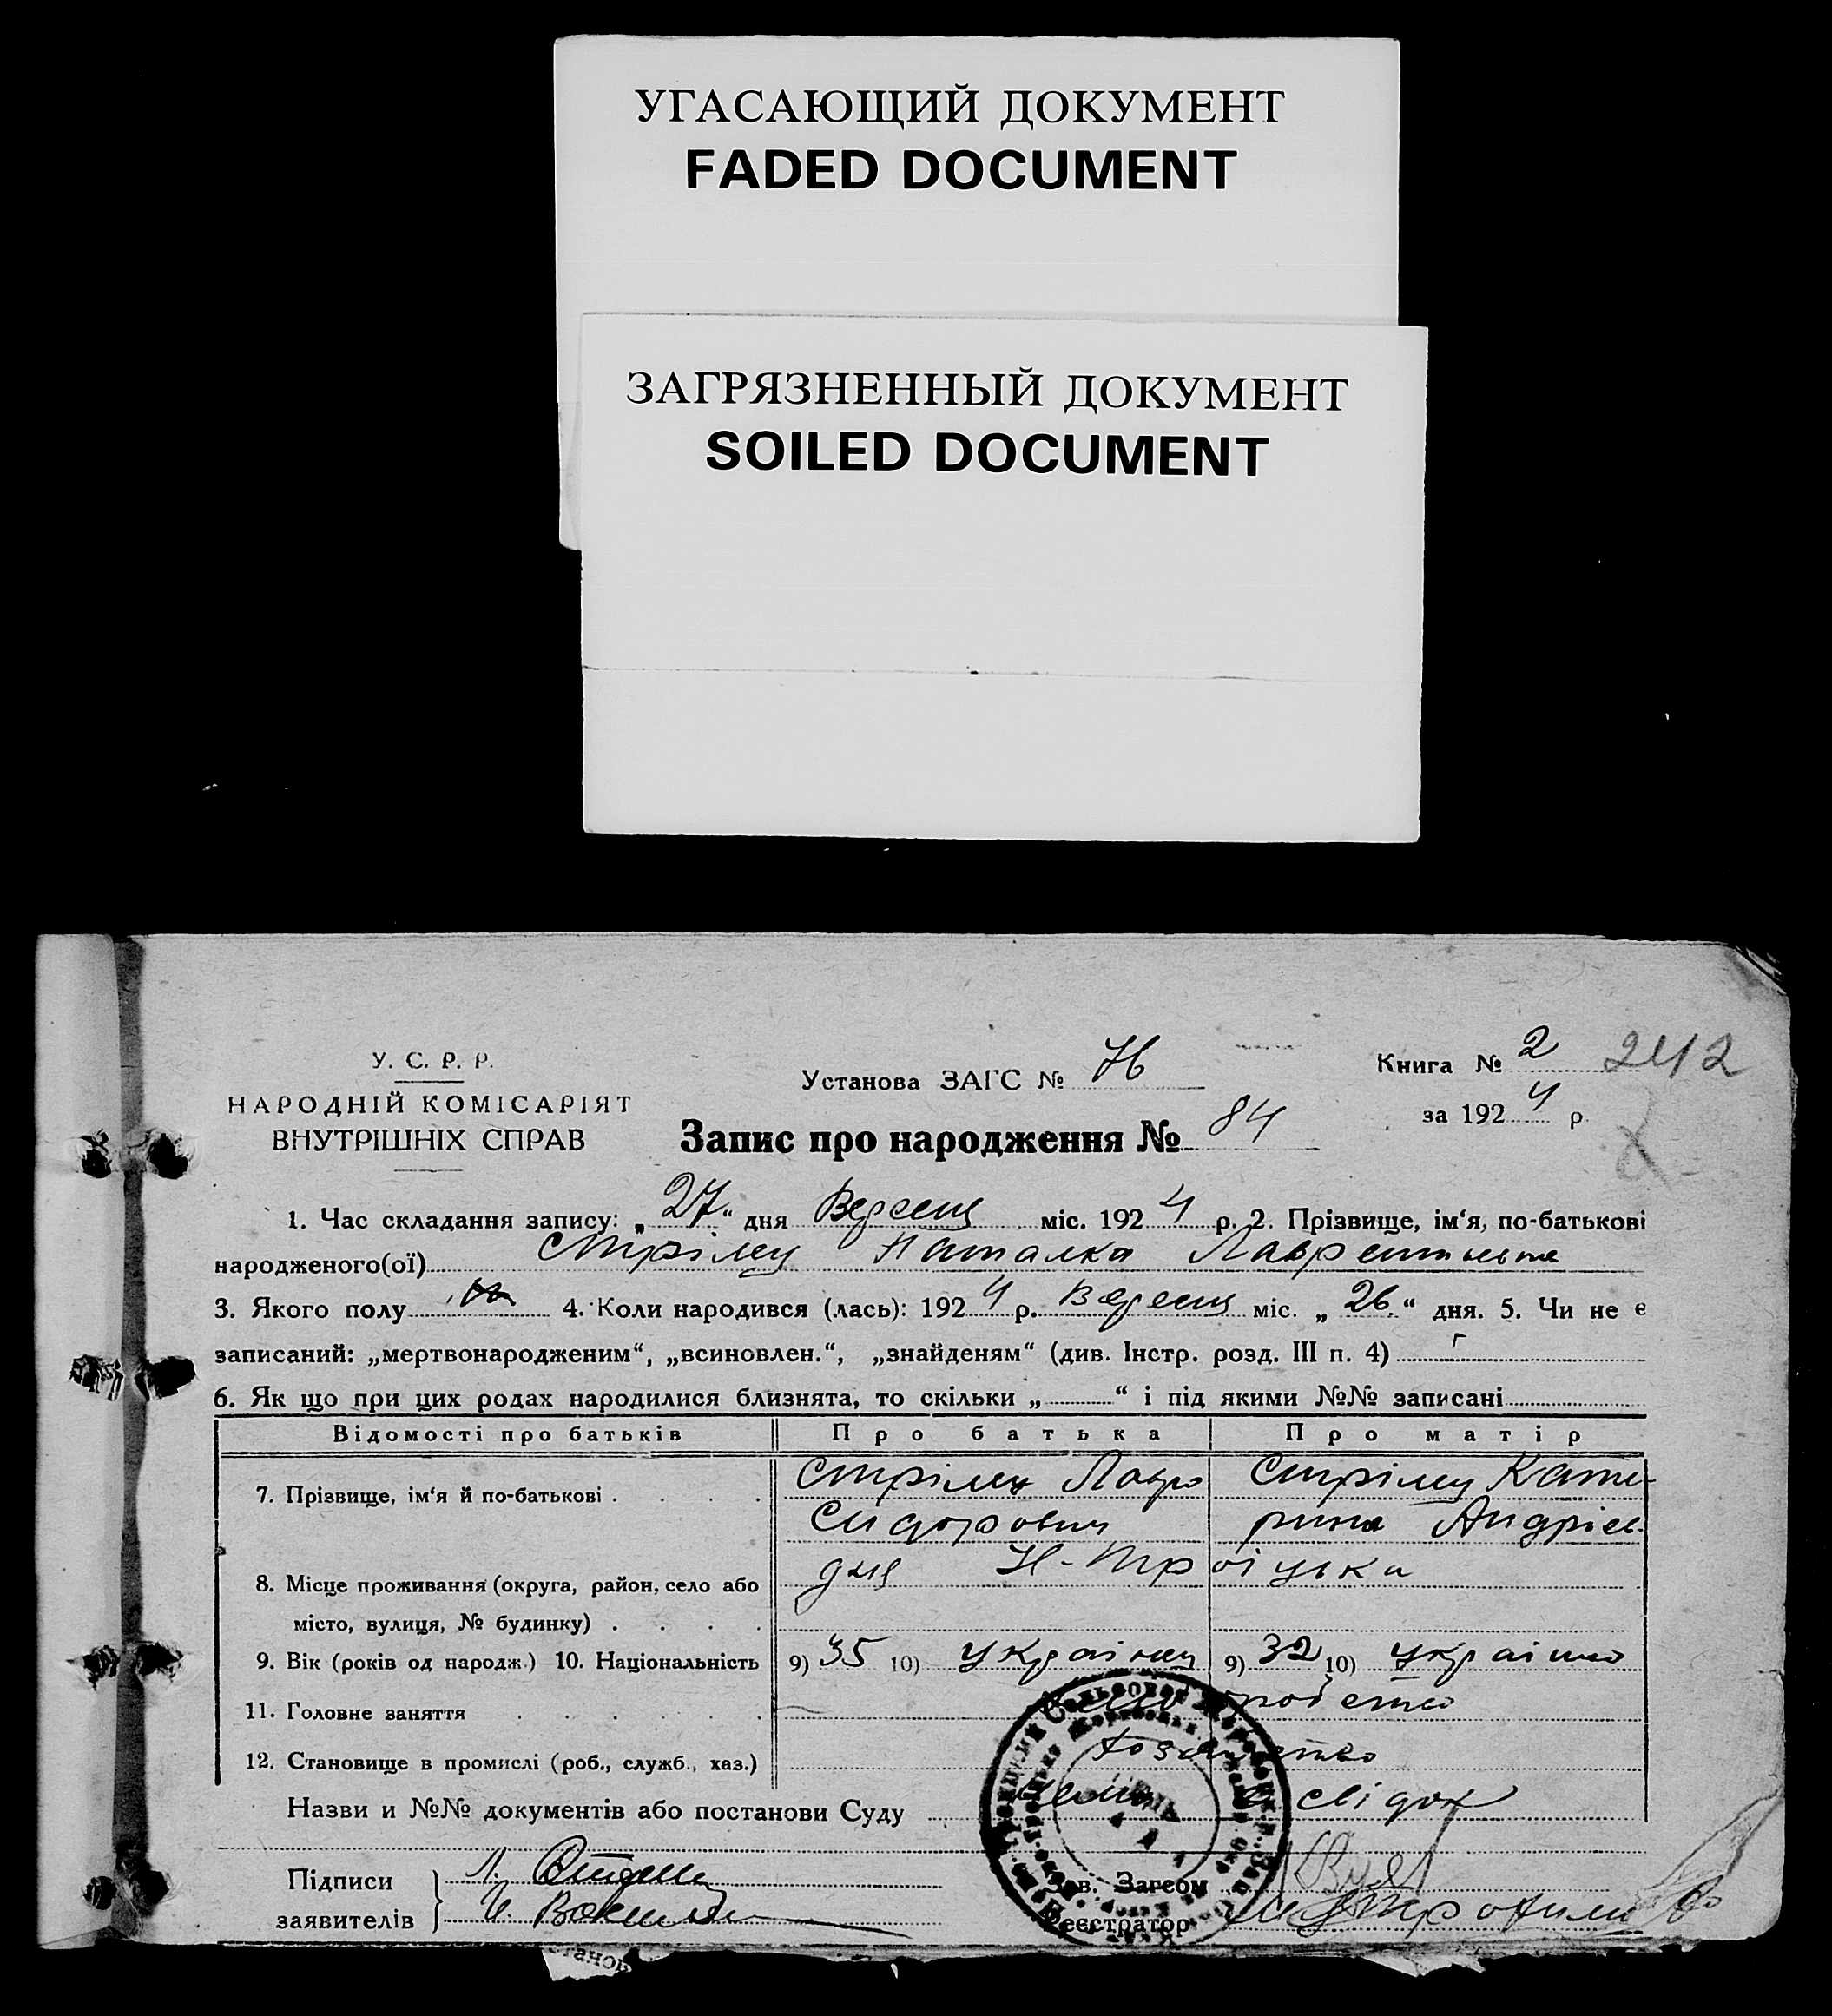 УГАСАЮЩИЙ ДОКУМЕНТ
FADED DOCUMENT
ЗАГРЯЗНЕННЫЙ ДОКУМЕНТ
SOILED DOCUMENT
У. С. Р. Р.
НАРОДНІЙ КОМІСАРІЯТ
ВНУТРІШНІХ СПРАВ
Установа ЗАГС № 76
Книга № 2 242
за 1924 р.
Запис про народження № 84
1. Час складання запису: „27“ дня Вересня міс. 1924 р. 2. Прізвище, ім‘я, по-батькові
народженого(ої) Стрілец Наталка Лаврентьевна
3. Якого полу 4. Коли народився (лась): 1924 р. Вересня міс. „26“ дня. 5. Чи не є
записаний: „мертвонародженим“, „всиновлен.“, „знайденям“ (див. Інстр. розд. III п. 4)
6. Як що при цих родах народилися близнята, то скільки „ “ і під якими №№ записані
Відомості про батьків Про батька Про матір
7. Прізвище, ім‘я й по-батькові Стрілец Лавро Стрілец Кате-
Сидорович рина Андріев-
8. Місце проживання (округа, район, село або Н-Троіцька
місто, вулиця, № будинку)
9. Вік (років од народж.) 10. Національність 9) 35 10) українец 9) 32 10) україн
11. Головне заняття
12. Становище в промислі (роб., служб., хаз.)
Назви и №№ документів або постанови Суду
Підписи
заявителів
Зав. Загсом
Реєстратор